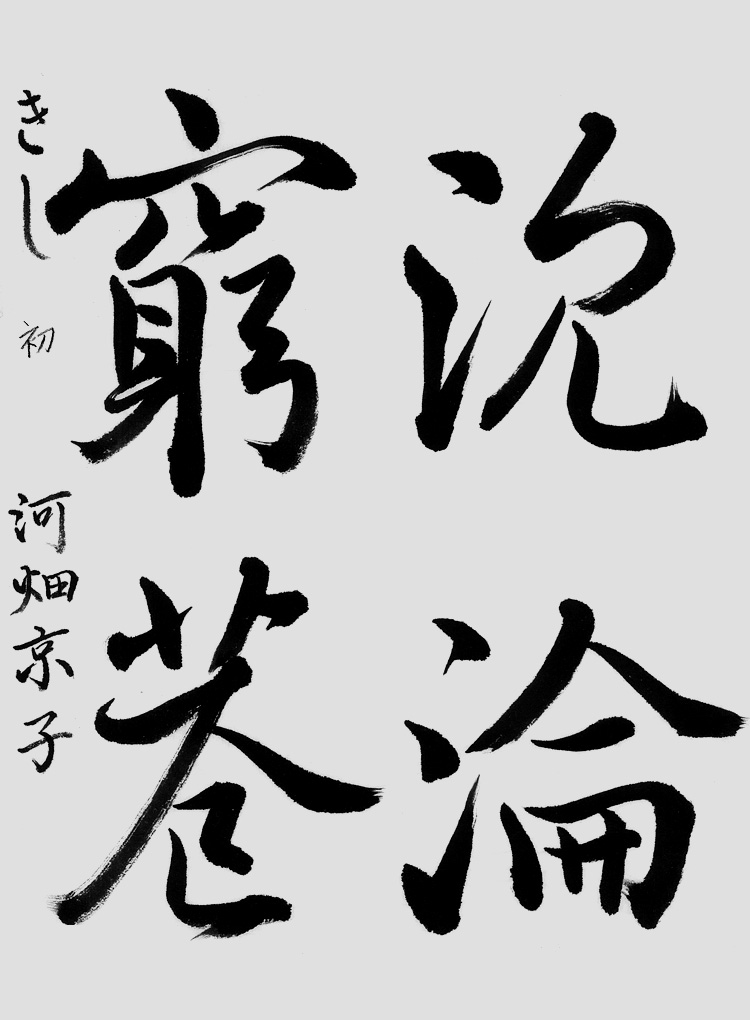 沈淪
窮巷
きし 初 河畑京子